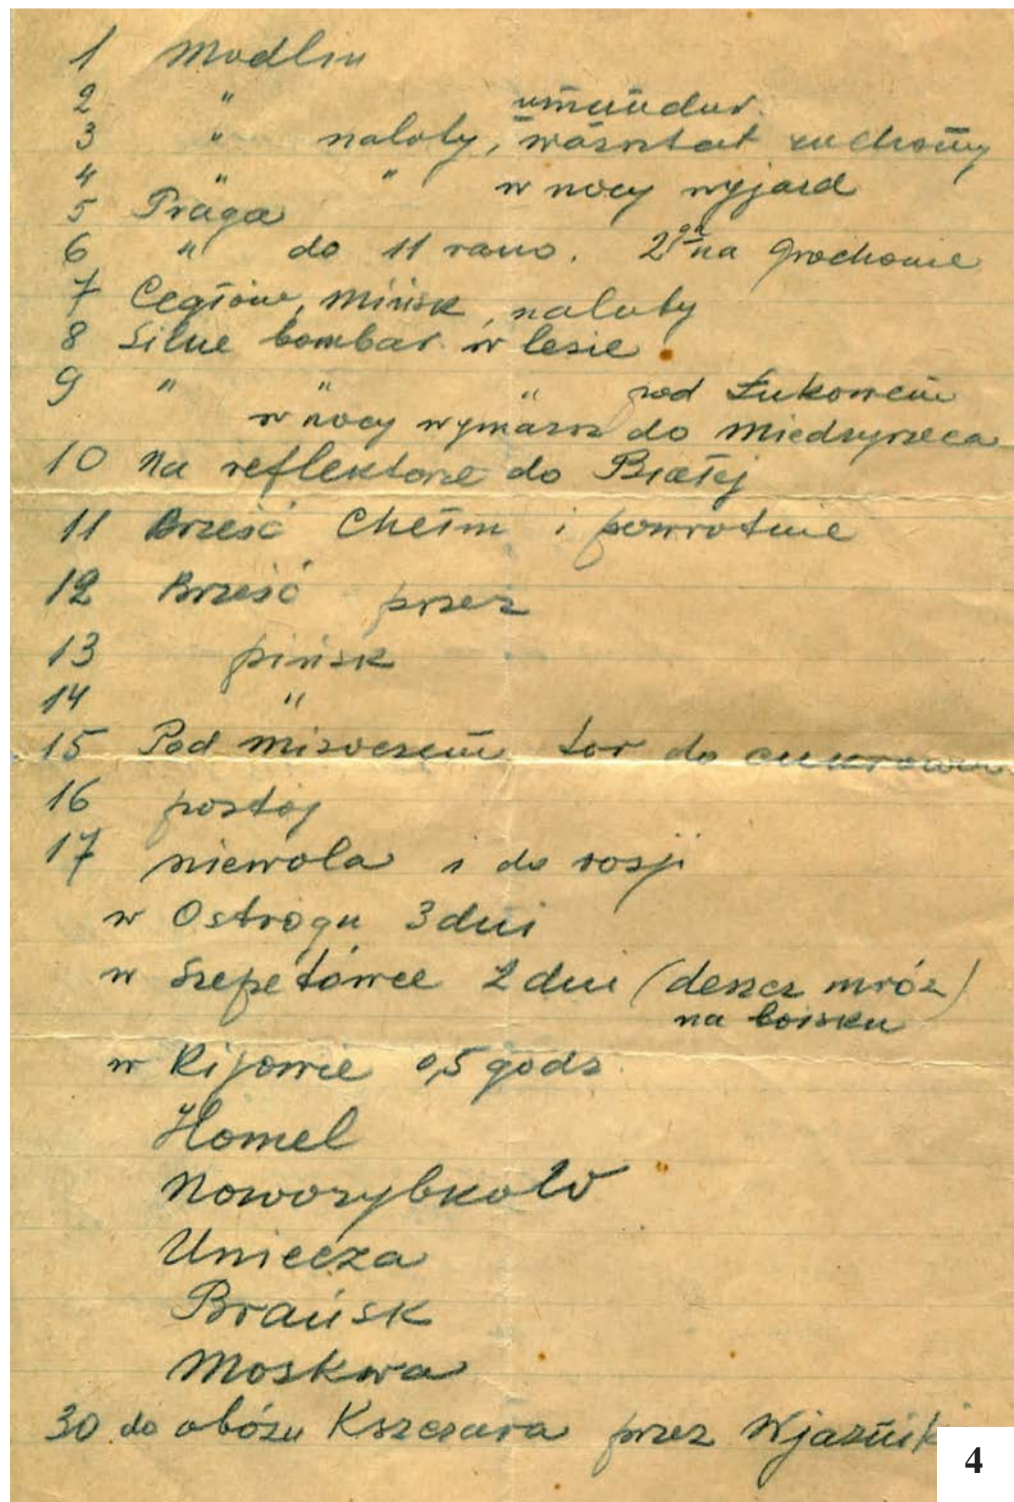 1 Modlin
2 " umundur.
3 " naloty, warsztat ruchomy
4 " " w nocy wyjazd
5 Praga
6 " do 11 rano. 2ga na Grochowie
7 Cegłów, Mińsk, naloty
8 Silne bombar. w lesie
9 " " " pod Łukowem
w nocy wymarsz do Miedzyrzeca
10 Na reflektorze do Białej
11 Brześć Chełm i powrotnie
12 Brześć przez
13 pińsk
14 "
15 Pod tor do
16 postój
17 niewola i do rosji
w Ostrogu 3 dni
w Szepetówce 2 dni (deszcz mróz)
na boisku
w Kijowie 0,5 godz.
Homel
Nowozybków
Uniecza
Brańsk
Moskwa
30 do obózu Kszczara przez Wjaźniki
4